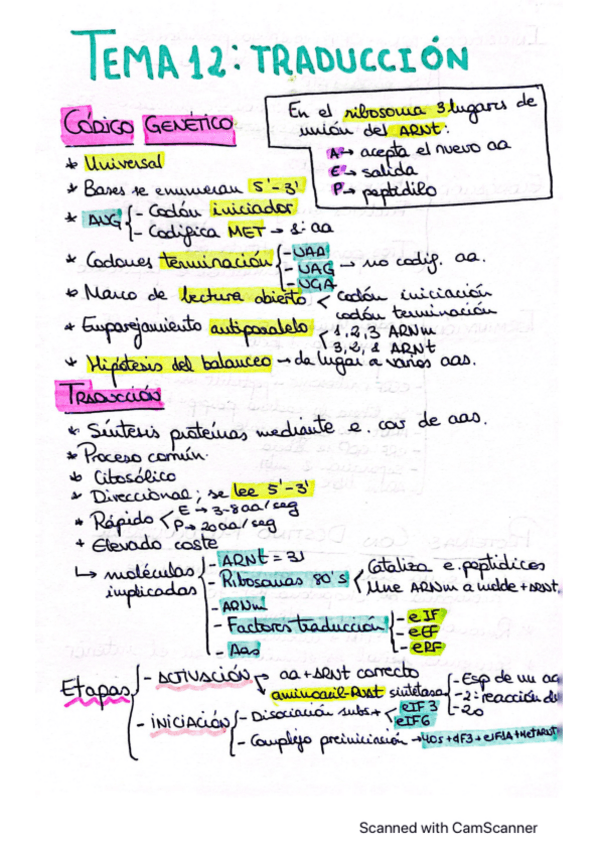 TEMA 12: TRADUCCIÓN
CÓDIGO GENÉTICO
En el ribosoma 3 lugares de
unión del ARNt:
A → acepta el nuevo aa
E → salida
P → peptidilo
* Universal
* Bases se enumeran 5'-3'
* AUG - Codón iniciador
- Codifica MET → 1º aa
* Codones terminación - UAA
- UAG → no codif. aa.
- UGA
* Marco de lectura abierto < codón iniciación
codón terminación
* Emparejamiento antiparalelo < 1, 2, 3 ARNm
3, 2, 1 ARNt
* Hipótesis del balanceo → da lugar a varios aas.
TRADUCCIÓN
* Síntesis proteínas mediante e. cov de aas.
* Proceso común.
* Citosólico
* Direccional; se lee 5'-3'
* Rápido < E → 3-8aa/seg
P → 20aa/seg
* Elevado coste
↳ moléculas implicadas
- ARNt = 31
- Ribosomas 80's < Cataliza e. peptídicos
Une ARNm a molde + ARNt.
- ARNm
- Factores traducción - eIF
- eEF
- eRF
- Aas
Etapas
- ACTIVACIÓN → aa + ARNt correcto
→ aminoacil-ARNt sintetasa - Esp de un aa
- 2: reacción de
- 20
- INICIACIÓN - Disociación subs + eIF3
eIF6
- Complejo preiniciación → 40s + dF3 + eIF1A + MetARNt
Scanned with CamScanner